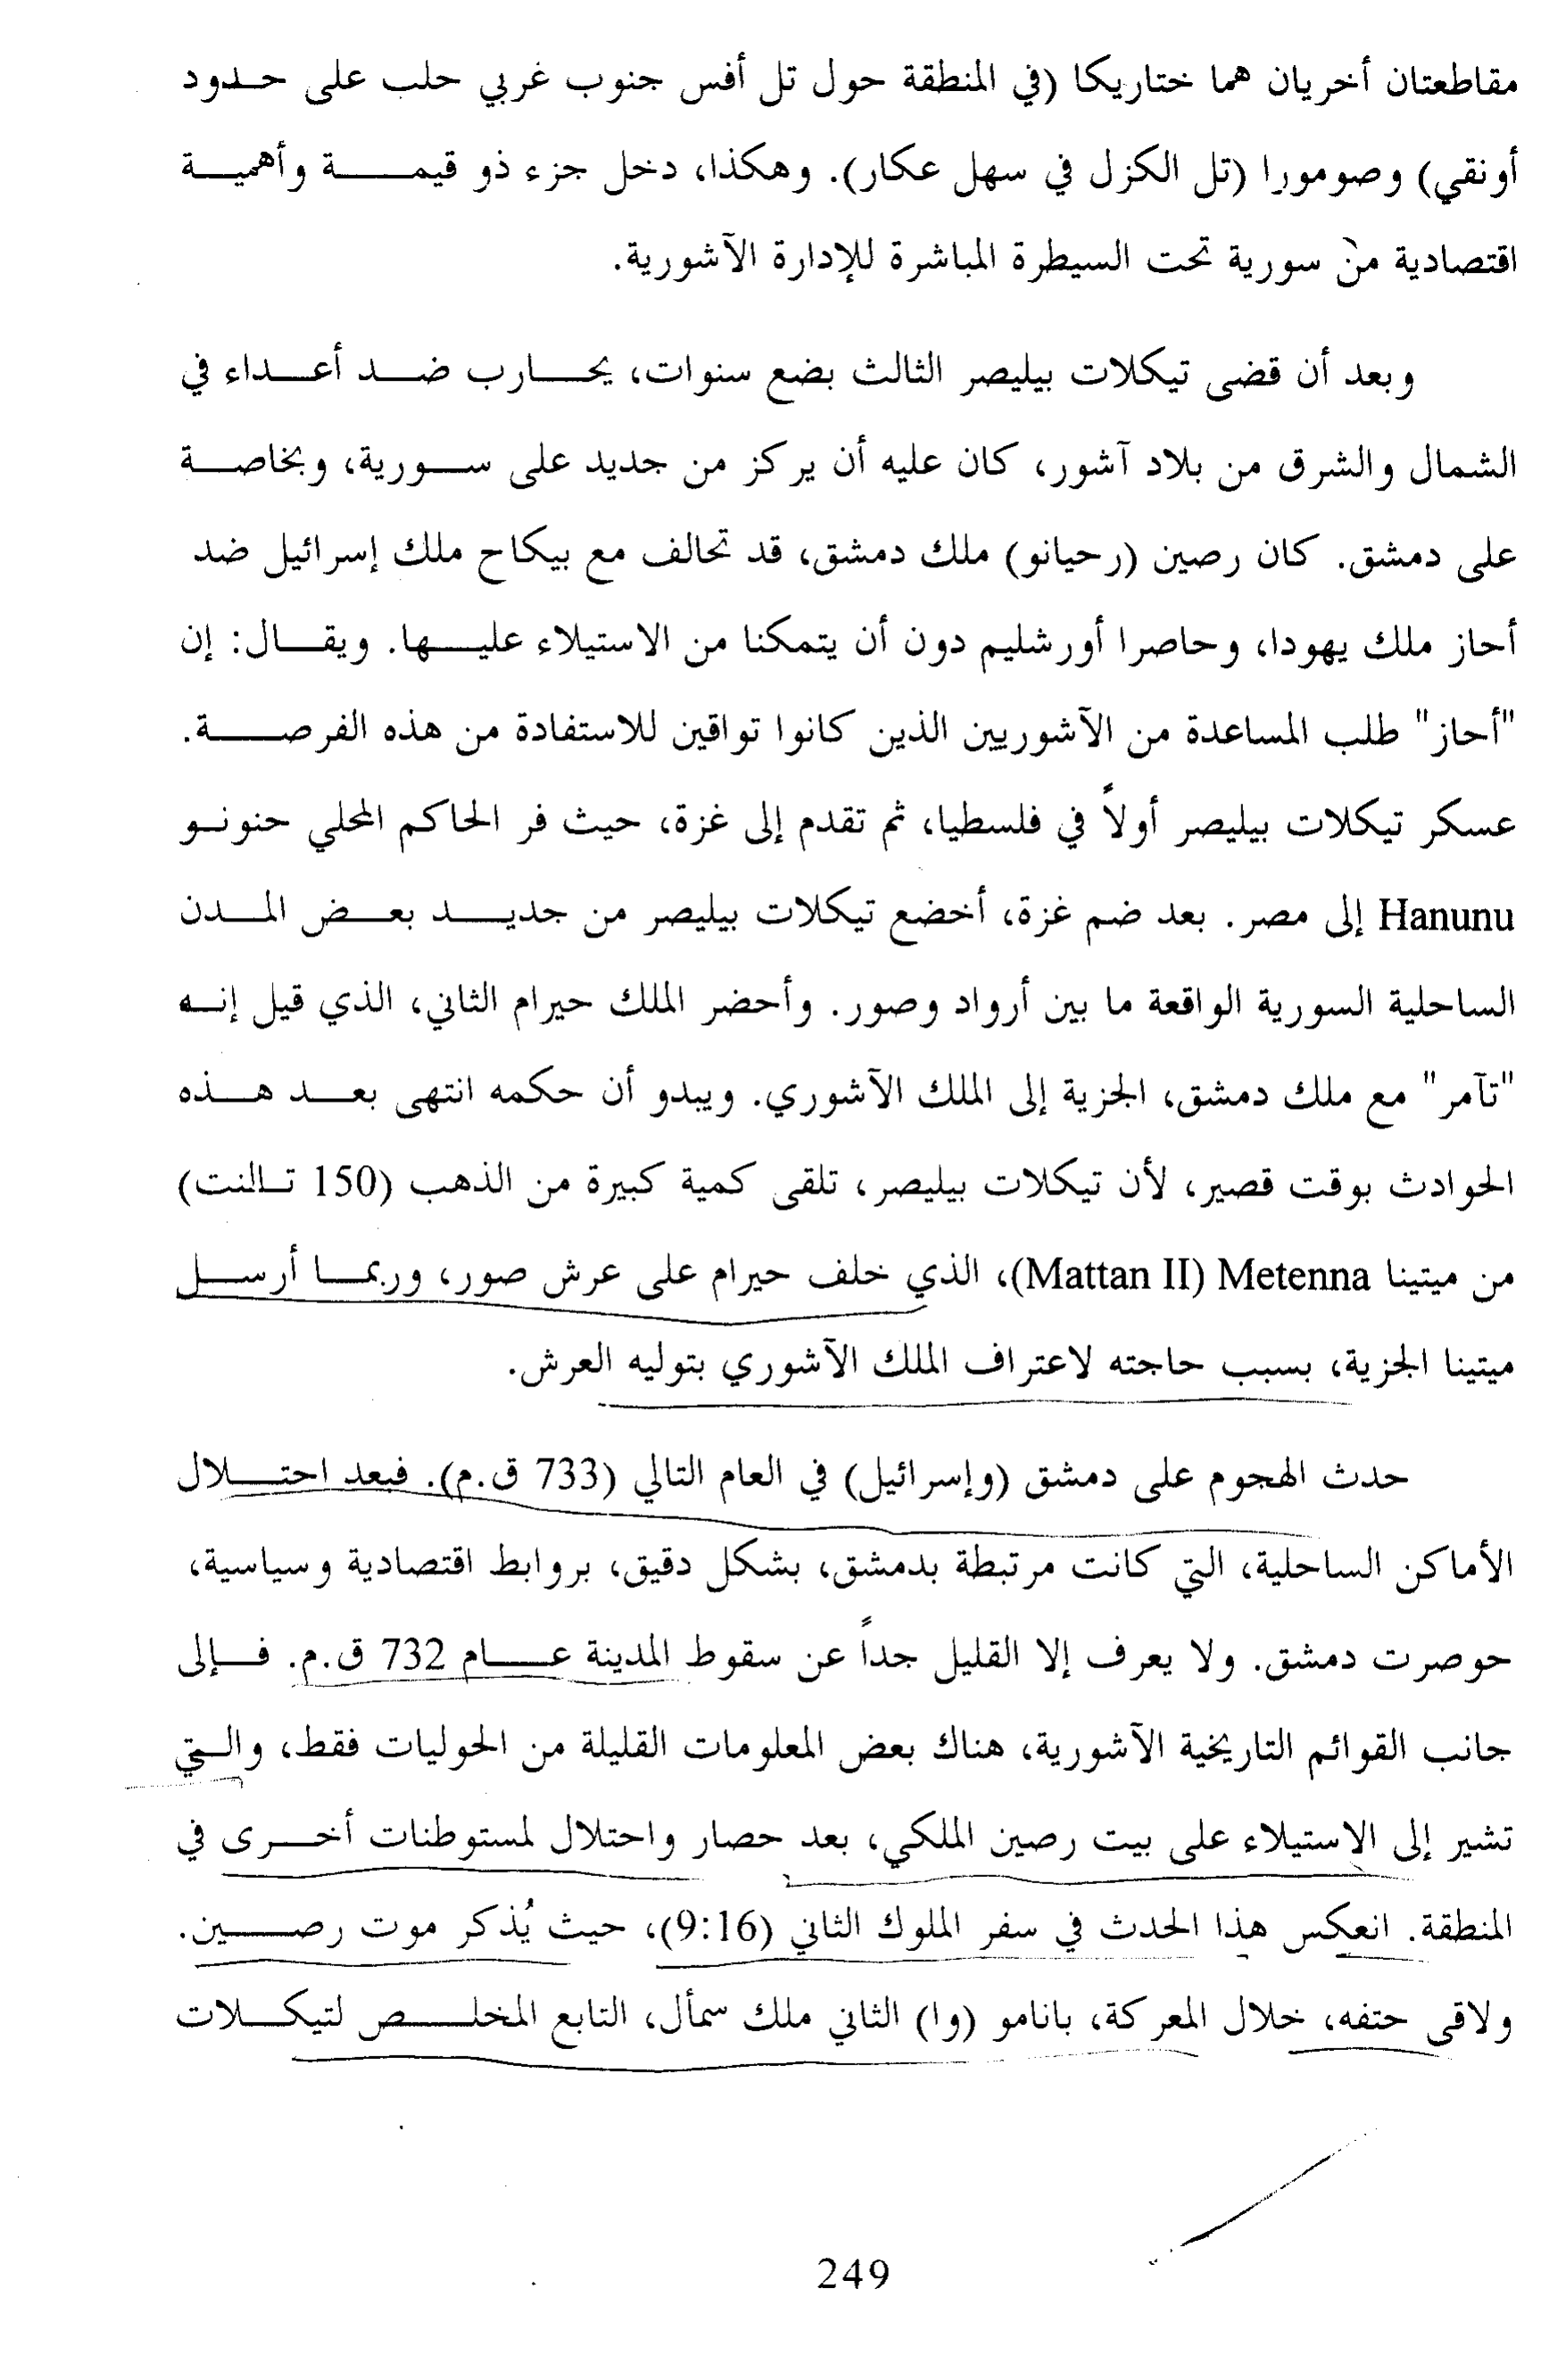 مقاطعتان أخريان هما ختاريكا (في المنطقة حول تل أفس جنوب غربي حلب على حدود
أونقي) وصومورا (تل الكزل في سهل عكار). وهكذا، دخل جزء ذو قيمة وأهمية
اقتصادية من سورية تحت السيطرة المباشرة للإدارة الآشورية.
وبعد أن قضى تيكلات بيليصر الثالث بضع سنوات، يحارب ضد أعداء في
الشمال والشرق من بلاد آشور، كان عليه أن يركز من جديد على سورية، وبخاصة
على دمشق. كان رصين (رحيانو) ملك دمشق، قد تحالف مع بيكاح ملك إسرائيل ضد
أحاز ملك يهودا، وحاصرا أورشليم دون أن يتمكنا من الاستيلاء عليها. ويقال: إن
"أحاز" طلب المساعدة من الآشوريين الذين كانوا تواقين للاستفادة من هذه الفرصة.
عسكر تيكلات بيليصر أولاً في فلسطيا، ثم تقدم إلى غزة، حيث فر الحاكم المحلي حنونو
Hanunu إلى مصر. بعد ضم غزة، أخضع تيكلات بيليصر من جديد بعض المدن
الساحلية السورية الواقعة ما بين أرواد وصور. وأحضر الملك حيرام الثاني، الذي قيل إنه
"تآمر" مع ملك دمشق، الجزية إلى الملك الآشوري. ويبدو أن حكمه انتهى بعد هذه
الحوادث بوقت قصير، لأن تيكلات بيليصر، تلقى كمية كبيرة من الذهب (150 تالنت)
من ميتينا Metenna (Mattan II)، الذي خلف حيرام على عرش صور، وربما أرسل
ميتينا الجزية، بسبب حاجته لاعتراف الملك الآشوري بتوليه العرش.
حدث الهجوم على دمشق (وإسرائيل) في العام التالي (733 ق.م). فبعد احتلال
الأماكن الساحلية، التي كانت مرتبطة بدمشق، بشكل دقيق، بروابط اقتصادية وسياسية،
حوصرت دمشق. ولا يعرف إلا القليل جداً عن سقوط المدينة عام 732 ق.م. فإلى
جانب القوائم التاريخية الآشورية، هناك بعض المعلومات القليلة من الحوليات فقط، والتي
تشير إلى الاستيلاء على بيت رصين الملكي، بعد حصار واحتلال لمستوطنات أخرى في
المنطقة. انعكس هذا الحدث في سفر الملوك الثاني (9:16)، حيث يُذكر موت رصين.
ولاقى حتفه، خلال المعركة، بانامو (وا) الثاني ملك سمأل، التابع المخلص لتيكلات
249